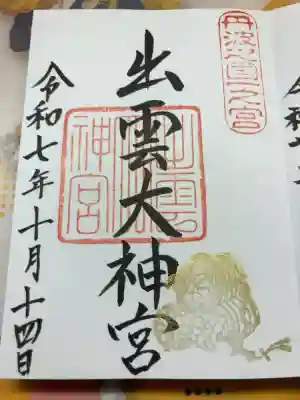 丹波國一之宮
出雲大神宮
出雲大神宮
令和七年十月十四日